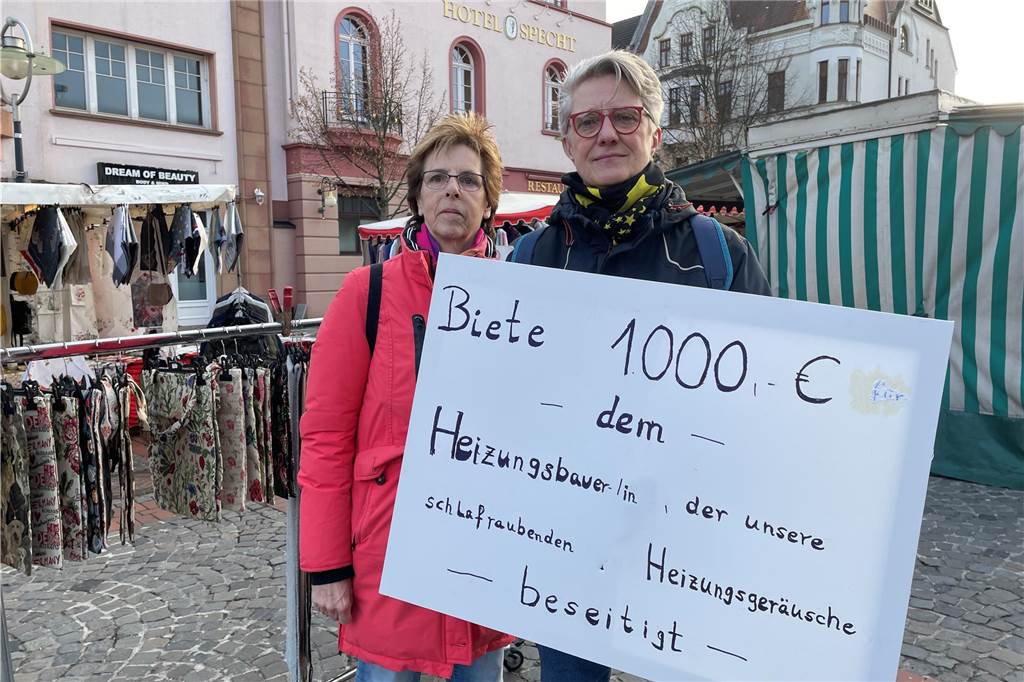 HOTEL SPECHT
DREAM OF BEAUTY
BODY & MIND
RESTAU
Biete 1.000,- €
- dem -
Heizungsbauer-/in, der unsere
schlafraubenden, Heizungsgeräusche
- beseitigt -